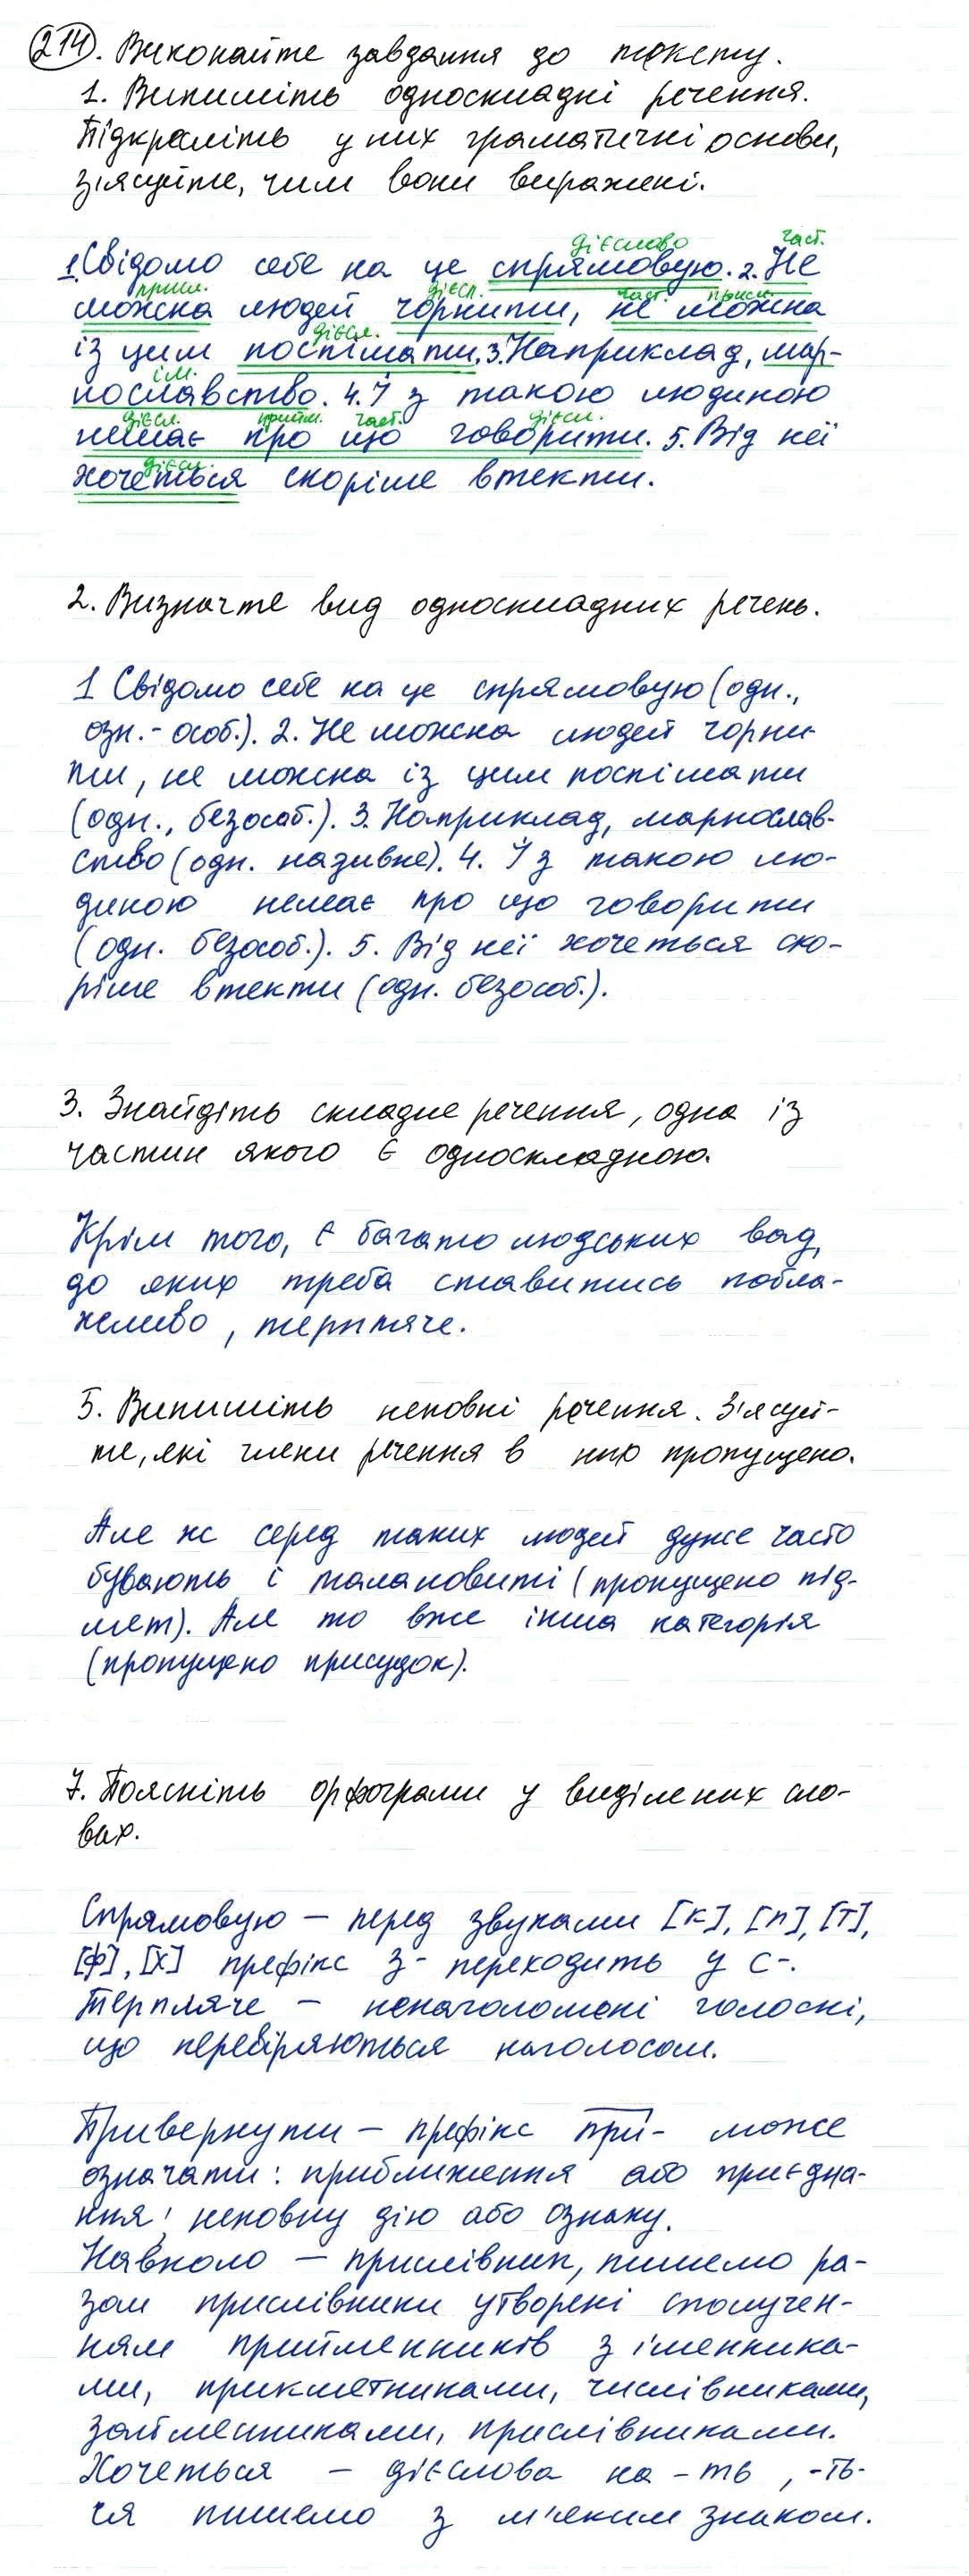 214. Виконайте завдання до тексту.
1. Випишіть односкладні речення.
Підкресліть у них граматичні основи,
з'ясуйте, чим вони виражені.
дієслово част.
1. Свідомо себе на це спрямовую. 2. Не
присл. дієсл. част. присл.
можна людей чорнити, не можна
дієсл.
із цим поспішати. 3. Наприклад, мар-
ім.
нославство. 4. Й з такою людиною
дієсл. прийм. част. дієсл.
немає про що говорити. 5. Від неї
дієсл.
хочеться скоріше втекти.
2. Визначте вид односкладних речень.
1 Свідомо себе на це спрямовую (одн.,
озн.-особ.). 2. Не можна людей чорни-
ти, не можна із цим поспішати
(одн., безособ.). 3. Наприклад, марнослав-
ство (одн. називне). 4. Й з такою лю-
диною немає про що говорити
(одн. безособ.). 5. Від неї хочеться ско-
ріше втекти (одн. безособ.).
3. Знайдіть складне речення, одна із
частин якого є односкладною.
Крім того, є багато людських вад,
до яких треба ставитись побла-
жливо, терпляче.
5. Випишіть неповні речення. З'ясуй-
те, які члени речення в них пропущено.
Але ж серед таких людей дуже часто
бувають і талановиті (пропущено під-
мет). Але то вже інша категорія
(пропущено присудок).
7. Поясніть орфограми у виділених сло-
вах.
Спрямовую – перед звуками [к], [п], [т],
[ф], [х] префікс з- переходить у с-.
Терпляче – ненаголошені голосні,
що перевіряються наголосом.
Привернути – префікс при- може
означати: приближення або приєдна-
ння; неповну дію або ознаку.
Навколо – прислівник, пишемо ра-
зом прислівники утворені сполучен-
ням прийменників з іменника-
ми, прикметниками, числівниками,
займенниками, прислівниками.
Хочеться – дієслова на -ть, -ть-
ся пишемо з м'яким знаком.